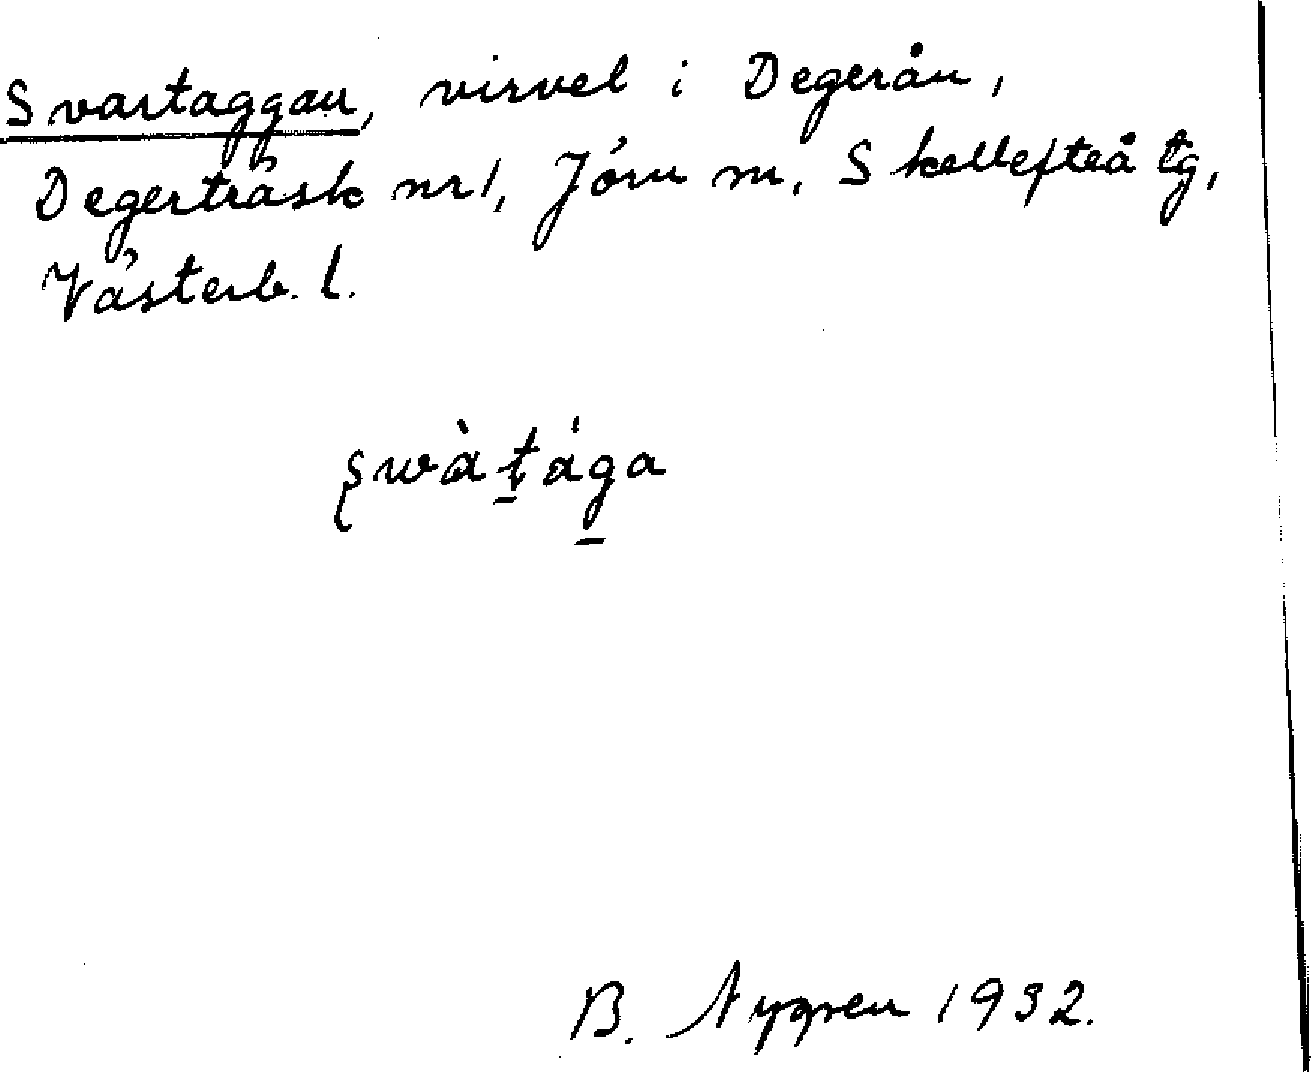 Svartaggan, virvel i Degerån,
Degerträsk nr 1, Jörn sn, Skellefteå tg,
Västerb. l.
swàt̠ága̠
B. Nygren 1932.